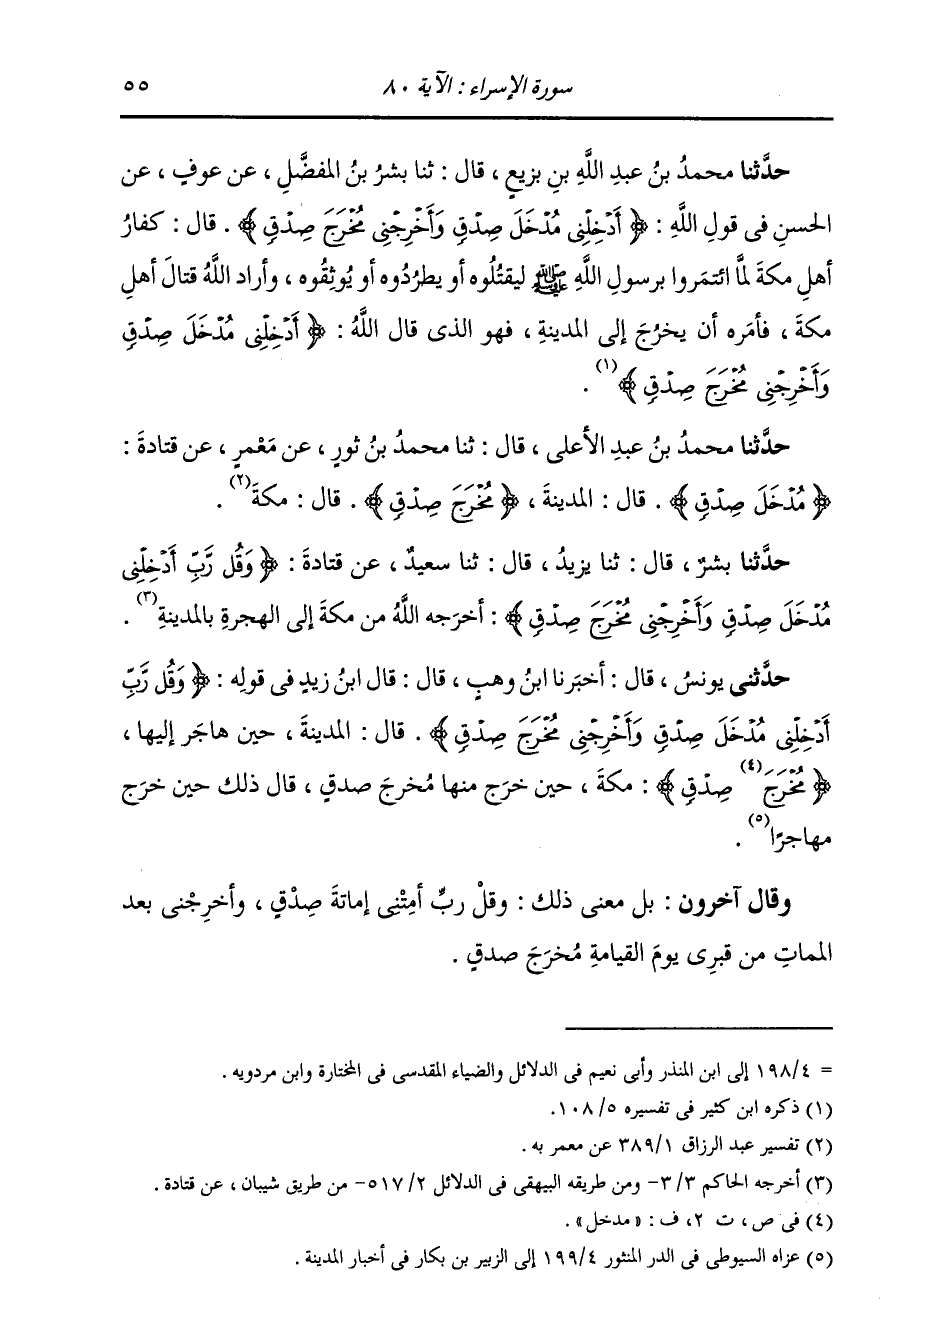 سورة الإسراء : الآية ٨٠
٥٥
حدَّثنا محمدُ بنُ عبدِ اللَّهِ بنِ بزيعٍ ، قال : ثنا بشرُ بنُ المفضَّلِ ، عن عوفٍ ، عن
الحسنِ فى قولِ اللَّهِ : ﴿ أَدْخِلْنِى مُدْخَلَ صِدْقٍ وَأَخْرِجْنِى مُخْرَجَ صِدْقٍ ﴾ . قال : كفارُ
أهلِ مكةَ لمَّا ائتمَروا برسولِ اللَّهِ ﷺ ليقتُلُوه أو يطرُدُوه أو يُوثِقُوه ، وأراد اللَّهُ قتالَ أهلِ
مكةَ ، فأمَره أن يخرُجَ إلى المدينةِ ، فهو الذى قال اللَّهُ : ﴿ أَدْخِلْنِى مُدْخَلَ صِدْقٍ
وَأَخْرِجْنِى مُخْرَجَ صِدْقٍ ﴾(١) .
حدَّثنا محمدُ بنُ عبدِ الأعلى ، قال : ثنا محمدُ بنُ ثورٍ ، عن مَعْمرٍ ، عن قتادةَ :
﴿ مُدْخَلَ صِدْقٍ ﴾ . قال : المدينةَ ، ﴿ مُخْرَجَ صِدْقٍ ﴾ . قال : مكةَ(٢) .
حدَّثنا بشرٌ ، قال : ثنا يزيدُ ، قال : ثنا سعيدٌ ، عن قتادةَ : ﴿ وَقُل رَّبِّ أَدْخِلْنِى
مُدْخَلَ صِدْقٍ وَأَخْرِجْنِى مُخْرَجَ صِدْقٍ ﴾ : أخرَجه اللَّهُ من مكةَ إلى الهجرةِ بالمدينةِ(٣) .
حدَّثنى يونسُ ، قال : أخبَرنا ابنُ وهبٍ ، قال : قال ابنُ زيدٍ فى قولِه : ﴿ وَقُل رَّبِّ
أَدْخِلْنِى مُدْخَلَ صِدْقٍ وَأَخْرِجْنِى مُخْرَجَ صِدْقٍ ﴾ . قال : المدينةَ ، حين هاجَر إليها ،
﴿ مُخْرَجَ(٤) صِدْقٍ ﴾ : مكةَ ، حين خرَج منها مُخرجَ صدقٍ ، قال ذلك حين خرَج
مهاجرًا(٥) .
وقال آخرون : بل معنى ذلك : وقلْ ربِّ أمِتْنِى إماتةَ صِدْقٍ ، وأخرِجْنى بعد
المماتِ من قبرِى يومَ القيامةِ مُخرَجَ صدقٍ .
= ١٩٨/٤ إلى ابن المنذر وأبى نعيم فى الدلائل والضياء المقدسى فى المختارة وابن مردويه .
(١) ذكره ابن كثير فى تفسيره ١٠٨/٥.
(٢) تفسير عبد الرزاق ٣٨٩/١ عن معمر به .
(٣) أخرجه الحاكم ٣/٣- ومن طريقه البيهقى فى الدلائل ٥١٧/٢- من طريق شيبان ، عن قتادة .
(٤) فى ص ، ت ٢، ف : «مدخل» .
(٥) عزاه السيوطى فى الدر المنثور ١٩٩/٤ إلى الزبير بن بكار فى أخبار المدينة .